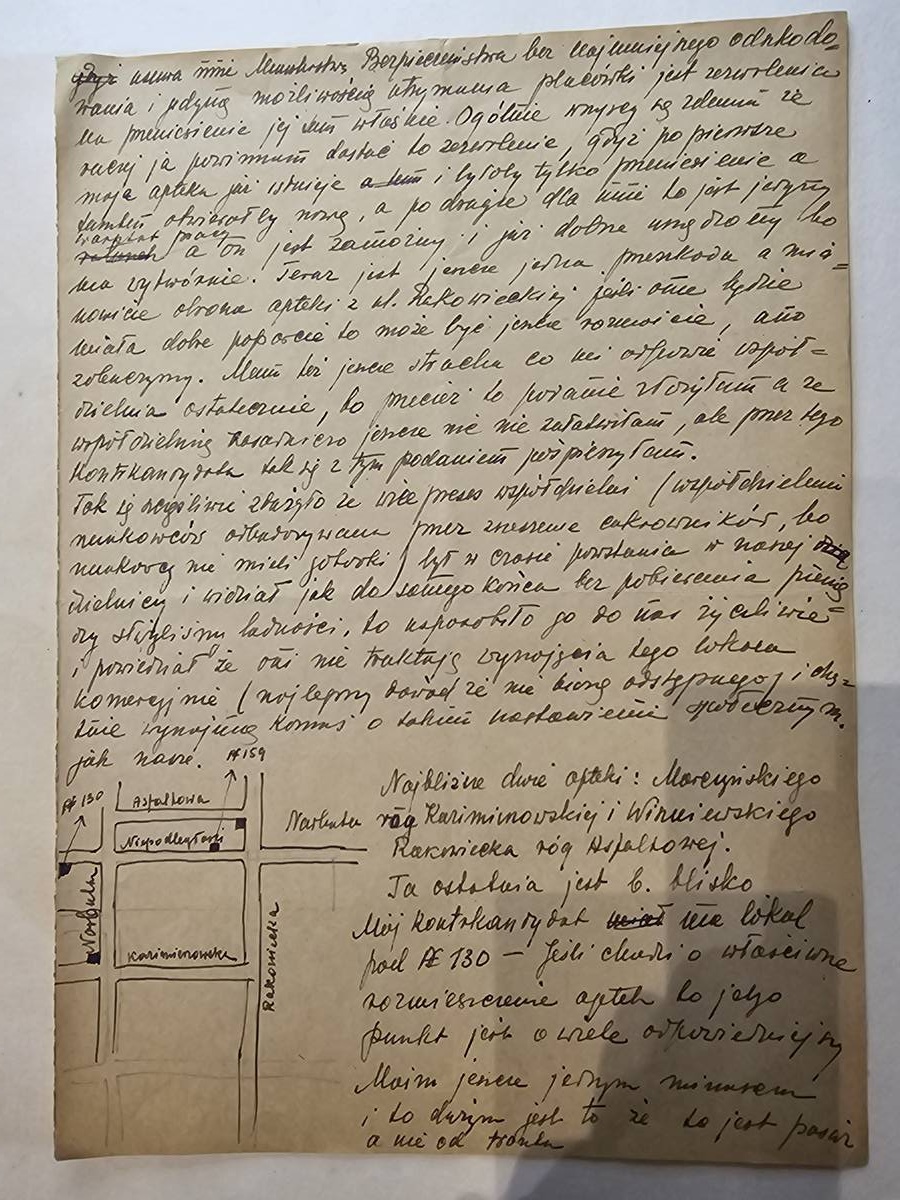 gdyż usuwa mnie Ministerstwo Bezpieczeństwa bez najmniejszego odszkodo=
wania i jedyną możliwością utrzymania placówki jest zezwolenie
na przeniesienie jej tam właśnie. Ogólnie wszyscy są zdania że
raczej ja powinnam dostać to zezwolenie, gdyż po pierwsze
moja apteka już istnieje a tam i byłoby tylko przeniesienie a
tamten otwierałby nową, a po drugie dla mnie to jest jedyny
warsztat pracy
a on jest zamożny i już dobrze urządzony bo
ma wytwórnię. Teraz jest jeszcze jedna przeszkoda a mia=
nowicie obrona apteki z ul. Rakowieckiej jeśli one będzie
miała dobre poparcie to może być jeszcze rozmaicie, ano
zobaczymy. Mam też jeszcze stracha co mi odpowie współ=
dzielnia ostatecznie, bo przecież to podanie złożyłam a ze
współdzielnią zasadniczo jeszcze nic nie załatwiłam, ale przez tego
kontrkandydata tak się z tym podaniem pośpieszyłam.
Tak się szczęśliwie złożyło że wice prezes współdzielni (współdzielnia
naukowców odbudowywana przez zrzeszenie cukrowników, bo
naukowcy nie mieli gotówki) był w czasie powstania w naszej
dzielnicy i widział jak do samego końca bez pobierania pienię=
dzy służyliśmy ludności, to usposobiło go do nas życzliwie
i powiedział że oni nie traktują wynajęcia tego lokalu
komercyjnie (najlepszy dowód że nie biorą odstępnego) i chę=
tnie wynajmą komuś o takim nastawieniu społecznym.
jak nasze.
№ 159
№ 130
Aspaltowa
Niepodległości
Narbutta
Narbutta
Kazimierowska
Rakowiecka
Najbliższe dwie apteki: Marczyńskiego
róg Kazimierowskiej i Wiśniewskiego
Rakowiecka róg Aspaltowej.
Ta ostatnia jest b. blisko
Mój kontrkandydat miał ma lokal
pod № 130 – Jeśli chodzi o właściwe
rozmieszczenie aptek to jego
punkt jest o wiele odpowiedniejszy
Moim jeszcze jednym minusem
i to dużym jest to że to jest pasaż
a nie od frontu